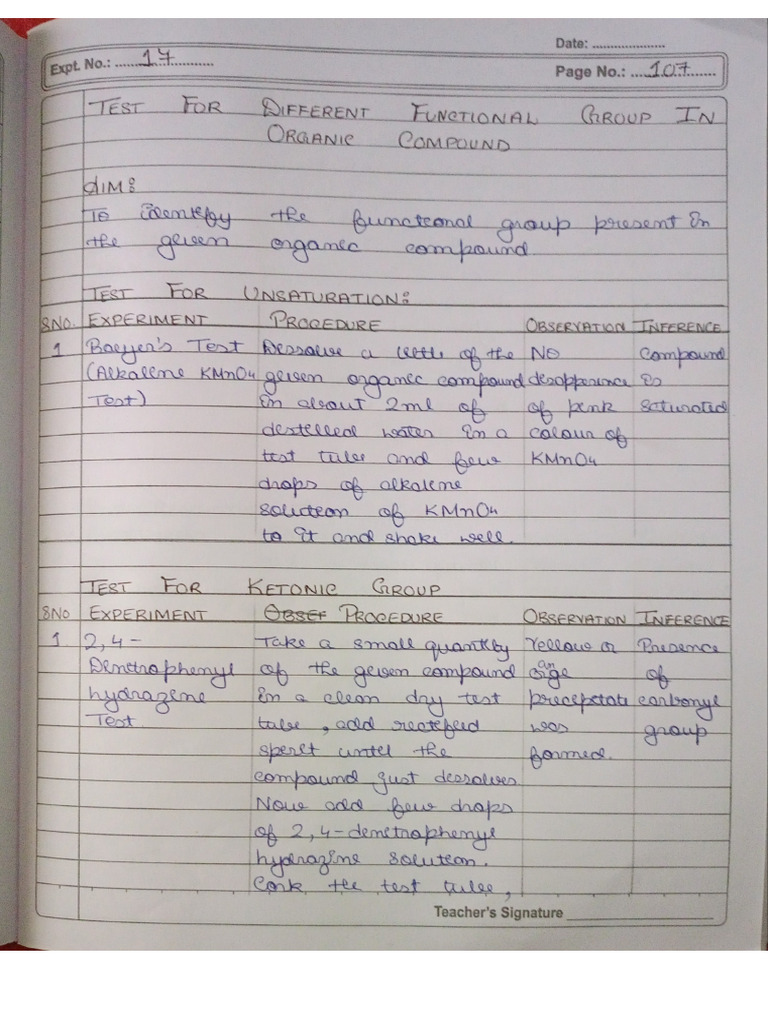 Date: ....................
Expt. No.: ......17............
Page No.: ....107.......
TEST FOR DIFFERENT FUNCTIONAL GROUP IN
ORGANIC COMPOUND
AIM:
To identify the functional group present in
the given organic compound
TEST FOR UNSATURATION:
SNO. EXPERIMENT PROCEDURE OBSERVATION INFERENCE
1 Baeyer's Test Dissolve a little of the No Compound
(Alkaline KMnO4 given organic compound disapperence is
Test) in about 2ml of of pink saturated
distilled water in a colour of
test tube and few KMnO4
drops of alkaline
solution of KMnO4
to it and shake well.
TEST FOR KETONIC GROUP
SNO EXPERIMENT PROCEDURE OBSERVATION INFERENCE
1 2,4- Take a small quantity Yellow or Presence
Dinitrophenyl of the given compound orange of
hydrazine in a clean dry test precipitate carbonyl
Test tube, add rectified was group
spirit until the formed.
compound just dissolves.
Now add few drops
of 2,4-dinitrophenyl
hydrazine solution.
Cork the test tube,
Teacher's Signature